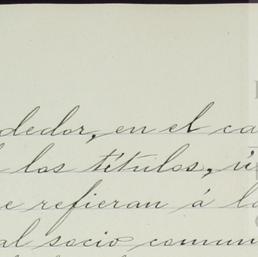 dedor, en el ca
los títulos, ú
e refieran á la
al socio comun